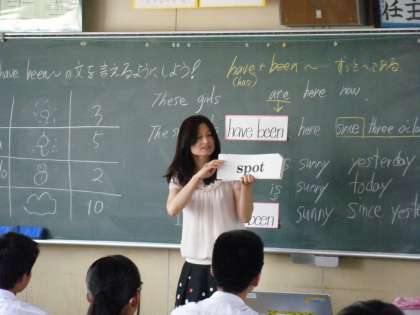 任主
have been～の文を言えるようにしよう!
have + been ～ ずっと～である
(has)
These girls are here now.
have been here since three o'clo
3
5
2
10
spot
is sunny yesterday
is sunny today
been sunny since yeste